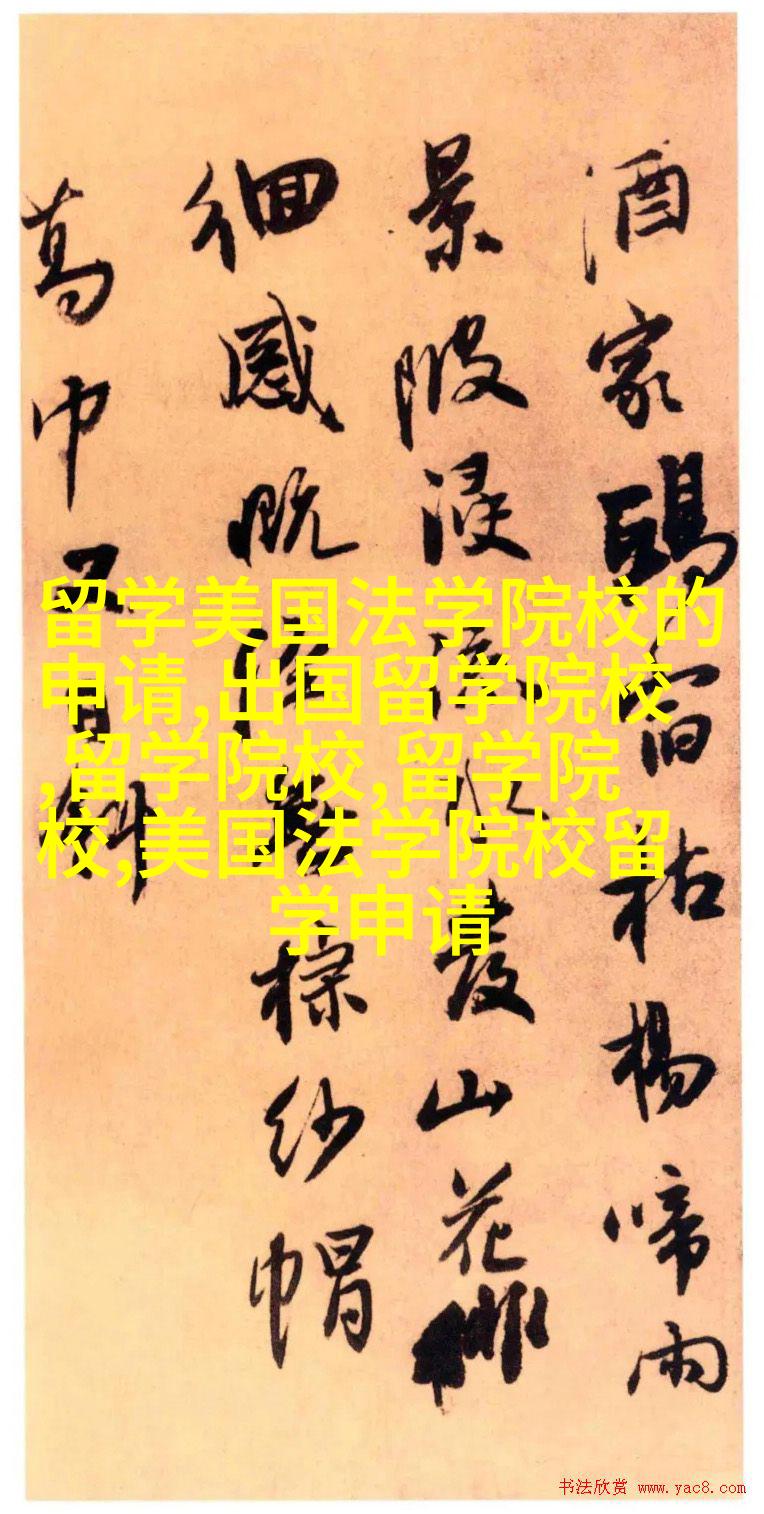 酒家枯楊啼雨
景陂浸發山花
徊感慨棕紗帽
葛巾又
留学美国法学院校的
申请,出国留学院校
,留学院校,留学院
校,美国法学院校留
学申请
书法欣赏 www.yac8.com